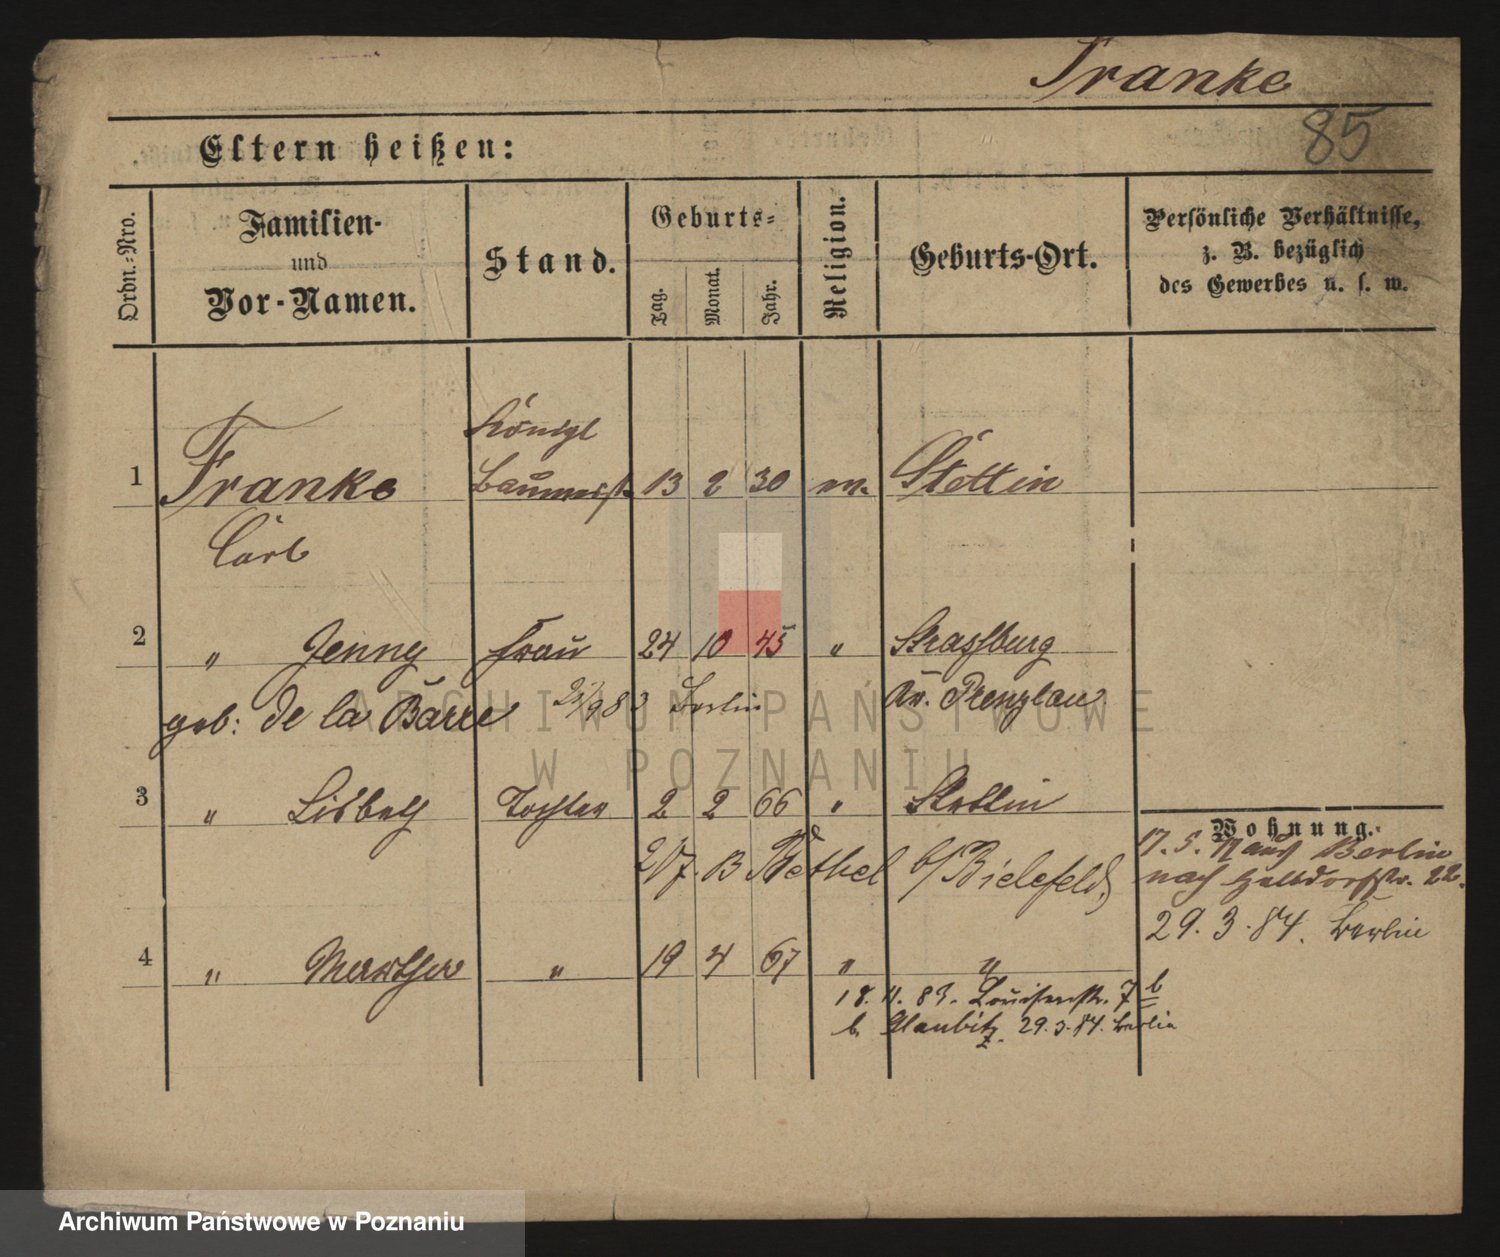 Franke
85
Eltern heißen:
Ordn.-Nro.
Familien-
und
Vor-Namen.
Stand.
Geburts-
Tag.
Monat.
Jahr.
Religion.
Geburts-Ort.
Persönliche Verhältnisse,
z. B. bezüglich
des Gewerbes u. s. w.
Königl
1 Franke Baumeist. 13 2 30 ev. Stettin
Carl
2 " Jenny Frau 24 10 45 " Strassburg
geb: de la Barre 983 Berlin Kr. Prenzlau
3 " Lisbeth Tochter 2 2 66 " Stettin
Wohnung.
17. 5. Berlin
2/7. B Bethel b/Bielefeld
nach 22.
29. 3. 84. Berlin
4 " Martha " 19 4 67 " "
18. 11. 83. Louisenstr. 7 b
b. Glaubitz 29. 3. 84. Berlin
ARCHIWUM PAŃSTWOWE
W POZNANIU
Archiwum Państwowe w Poznaniu